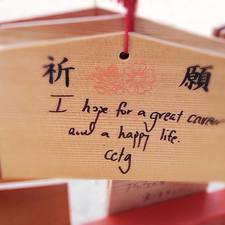 祈願
I hope for a great career
and a happy life.
cctg